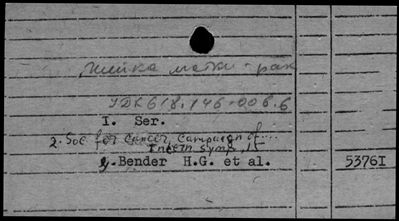 Шейка матки - рак
УДК 618.146-006.6
I. Ser.
2. Soc for Cancer Campaign of...
Intern Symp, 15
3. Bender H.G. et al.
5376I